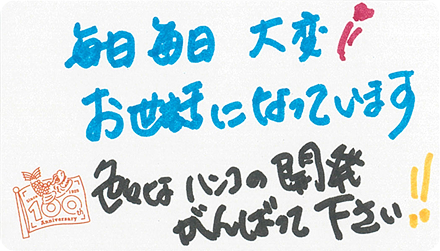 毎日毎日 大変!
お世話になっています
色々な ハンコの 開発
がんばって 下さい!!
100th
Anniversary